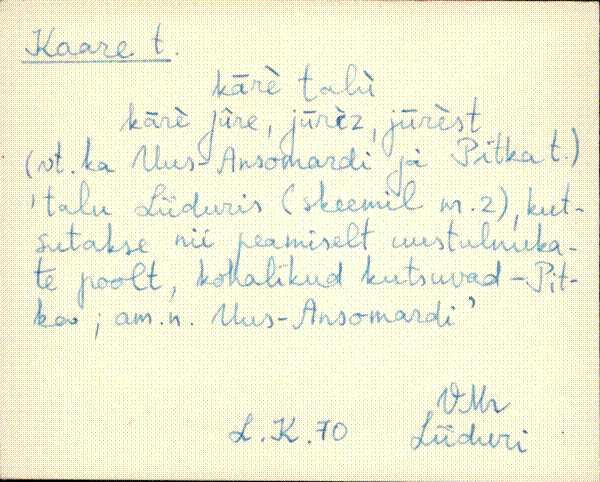 Kaare t.
kārè talù
kārè jūre, jūrèz, jūrèst
(vt. ka Uus-Ansomardi ja Pitka t.)
'talu Liiduris (skeemil nr. 2), kut-
sutakse nii peamiselt uustulnuka-
te poolt, kohalikud kutsuvad - Pit-
ka; am. n. Uus-Ansomardi'
VMr
L. K. 70 Liiduri